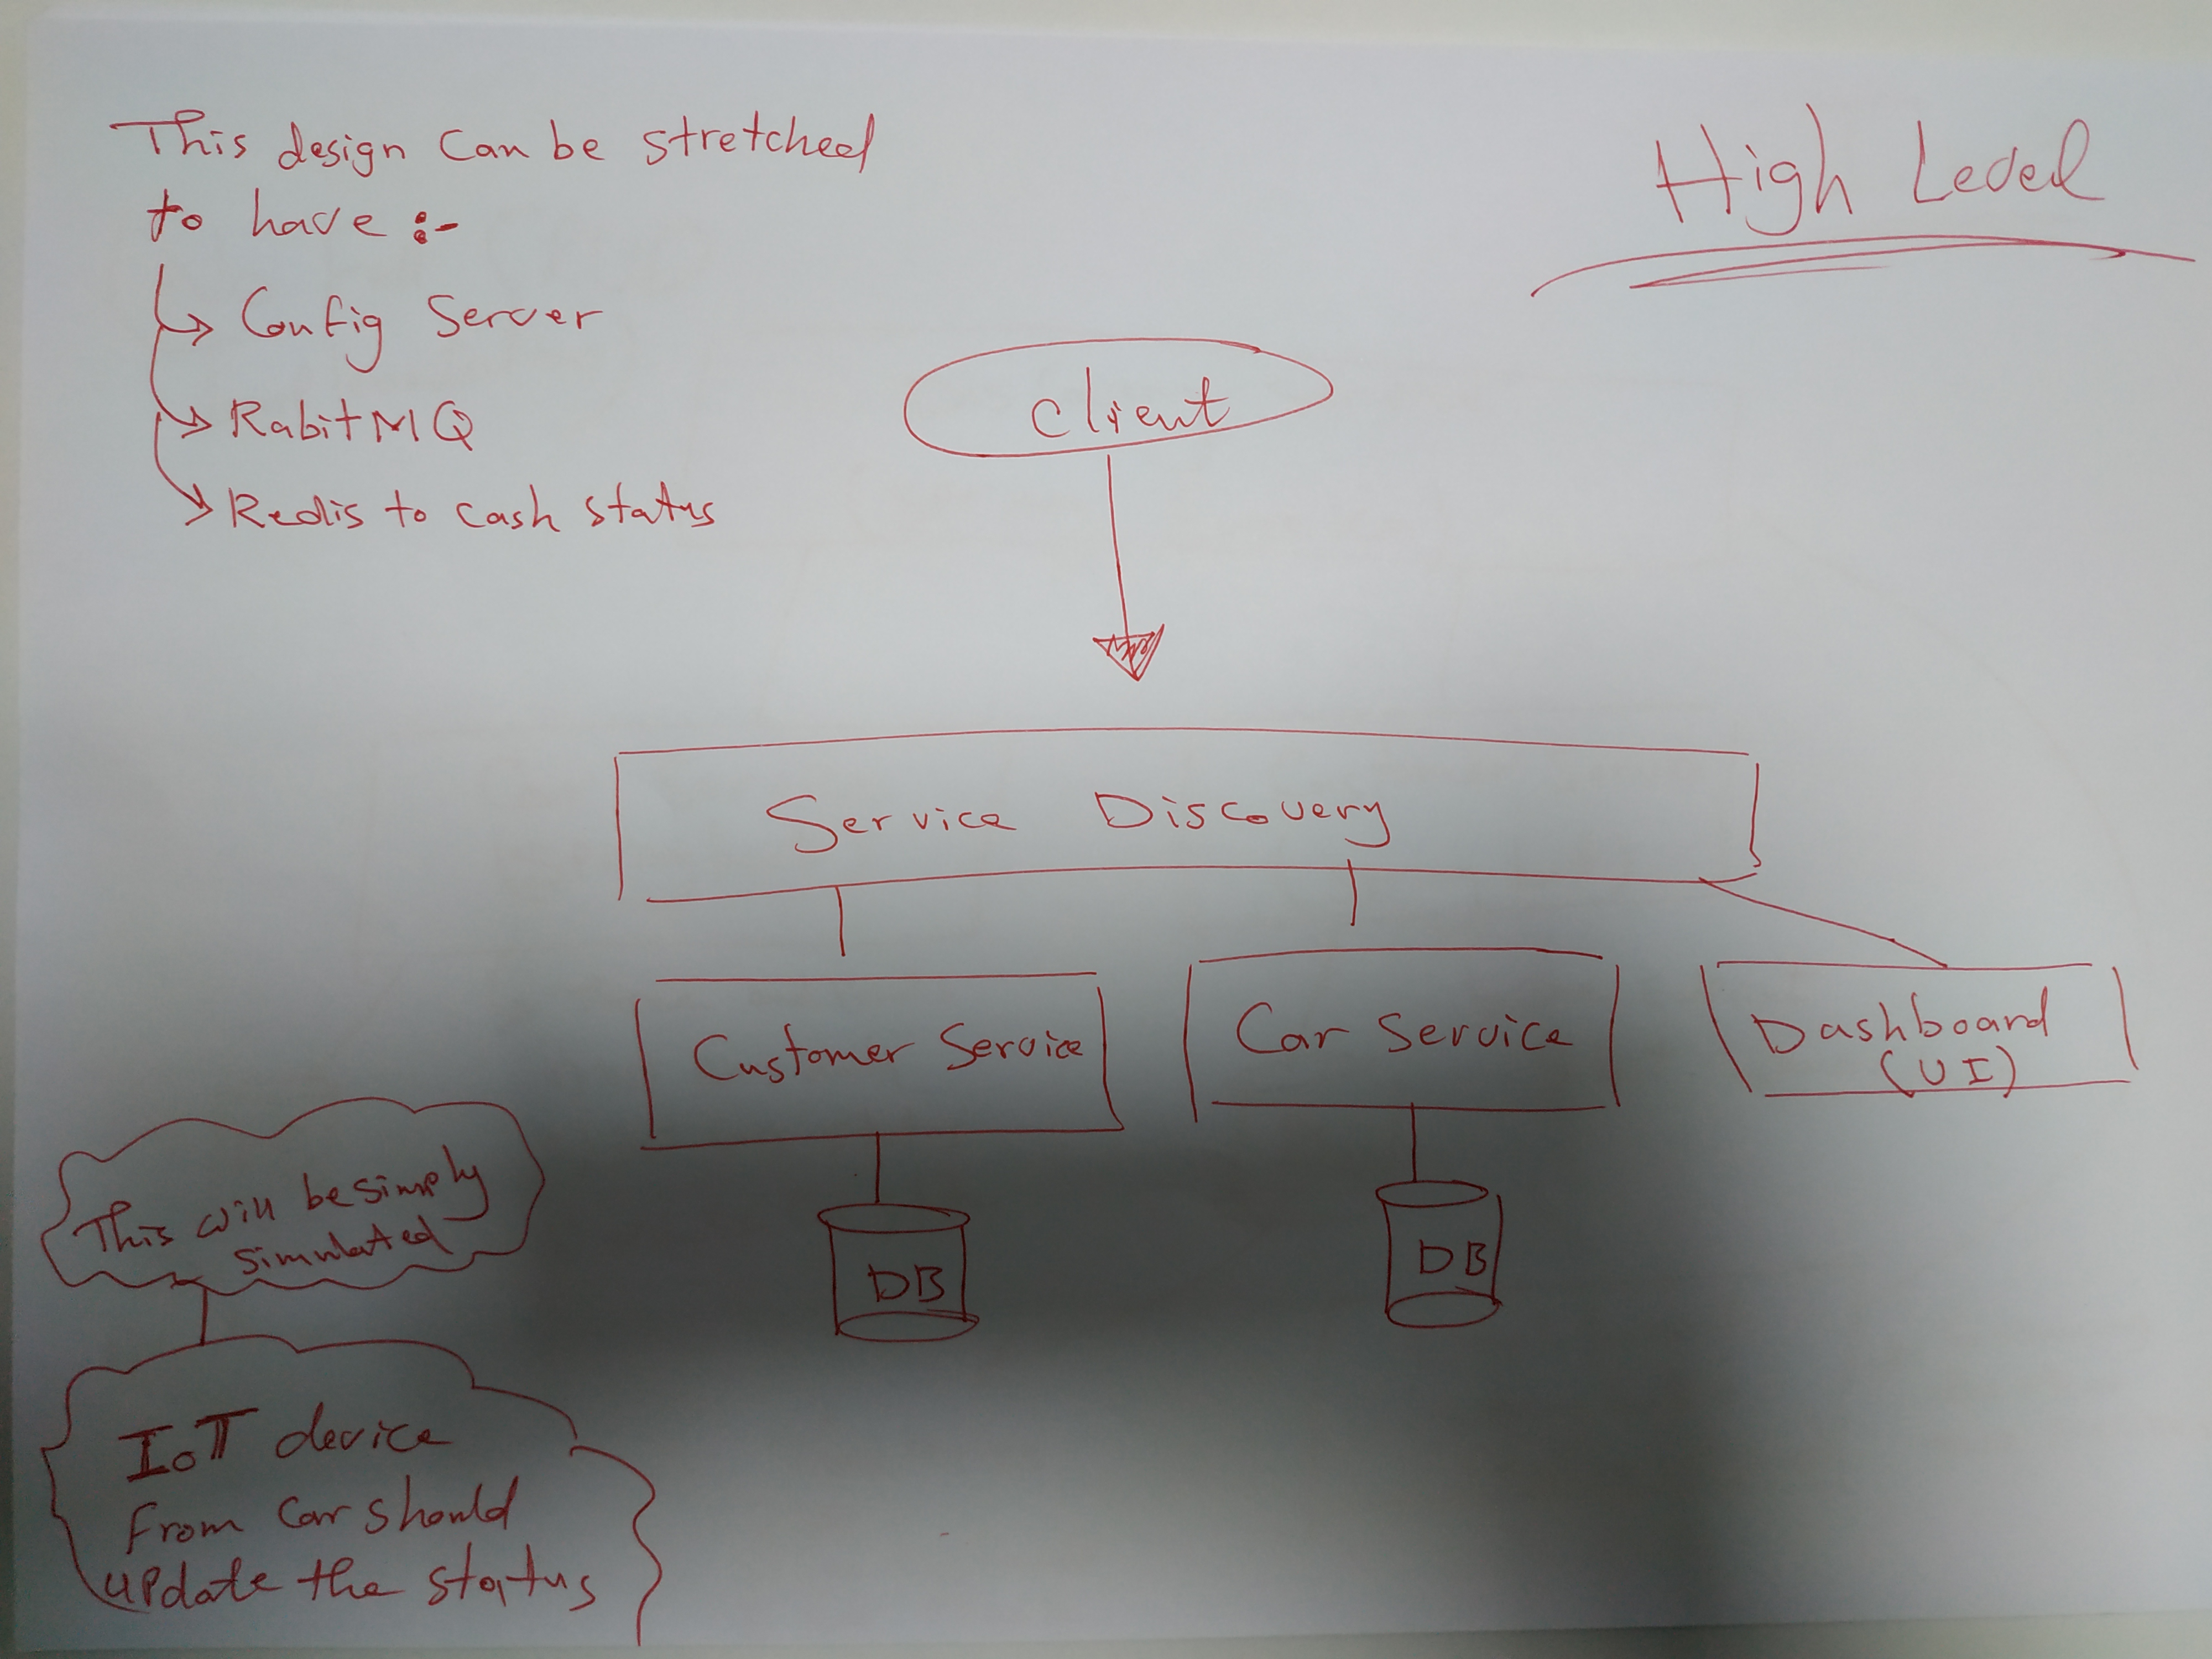 This design can be stretched
to have :-
Config Server
RabitMQ
Redis to cash status
High Level
Client
Service Discovery
Customer Service
Car Service
Dashboard
(UI)
DB
DB
This will be simply
simulated
IoT device
from car should
update the status